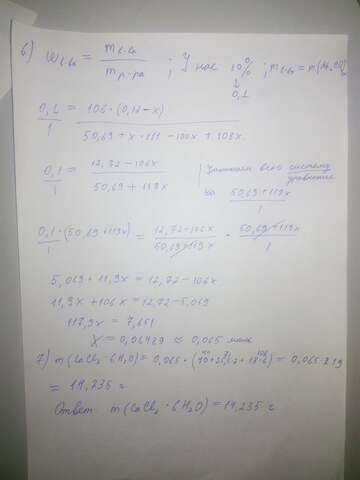 6) w в-ва = m в-ва / m р-ра ; У нас 10% ; m в-ва = m(Na₂CO₃)
↓
0,1
0,1 / 1 = 106·(0,12-x) / 50,69+x·111-100x+108x
0,1 / 1 = 12,72-106x / 50,69+119x | Умножаем всю систему уравнения на 50,69+119x / 1
0,1·(50,69+119x) / 1 = 12,72-106x / 50,69+119x · 50,69+119x / 1
5,069+11,9x=12,72-106x
11,9x+106x=12,72-5,069
117,9x=7,651
x=0,06489≈0,065 моль
7) m(CaCl₂·6H₂O)=0,065·(40+35,5·2+18·6)=0,065·219
=14,235 г
Ответ: m(CaCl₂·6H₂O)=14,235 г.